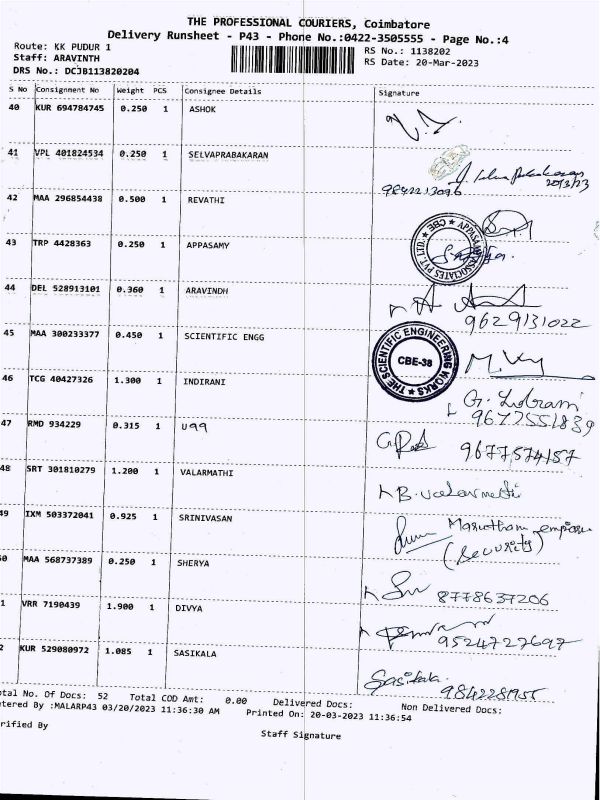 THE PROFESSIONAL COURIERS, Coimbatore
Delivery Runsheet - P43 - Phone No.:0422-3505555 - Page No.:4
Route: KK PUDUR 1
Staff: ARAVINTH
DRS No.: DCJB113820204
RS No.: 1138202
RS Date: 20-Mar-2023
S No Consignment No Weight PCS Consignee Details Signature
40 KUR 694784745 0.250 1 ASHOK
41 VPL 401824534 0.250 1 SELVAPRABAKARAN
20/3/23
9842213096
42 MAA 296854438 0.500 1 REVATHI
43 TRP 4428363 0.250 1 APPASAMY
APPASAMY ASSOCIATES PVT. LTD. ★ CBE ★
44 DEL 528913101 0.360 1 ARAVINDH
9629131022
45 MAA 300233377 0.450 1 SCIENTIFIC ENGG
★ THE SCIENTIFIC ENGINEERING WORKS ★
CBE-38
46 TCG 40427326 1.300 1 INDIRANI
9677551839
47 RMD 934229 0.315 1 U99
9677574157
48 SRT 301810279 1.200 1 VALARMATHI
B. Valarmathi
49 IXM 503372041 0.925 1 SRINIVASAN
Marutham
(Security)
50 MAA 568737389 0.250 1 SHERYA
8778637206
1 VRR 7190439 1.900 1 DIVYA
9524727697
2 KUR 529080972 1.085 1 SASIKALA
Sasikala
9842281955
otal No. Of Docs: 52 Total COD Amt: 0.00 Delivered Docs: Non Delivered Docs:
tered By :MALARP43 03/20/2023 11:36:30 AM Printed On: 20-03-2023 11:36:54
rified By
Staff Signature